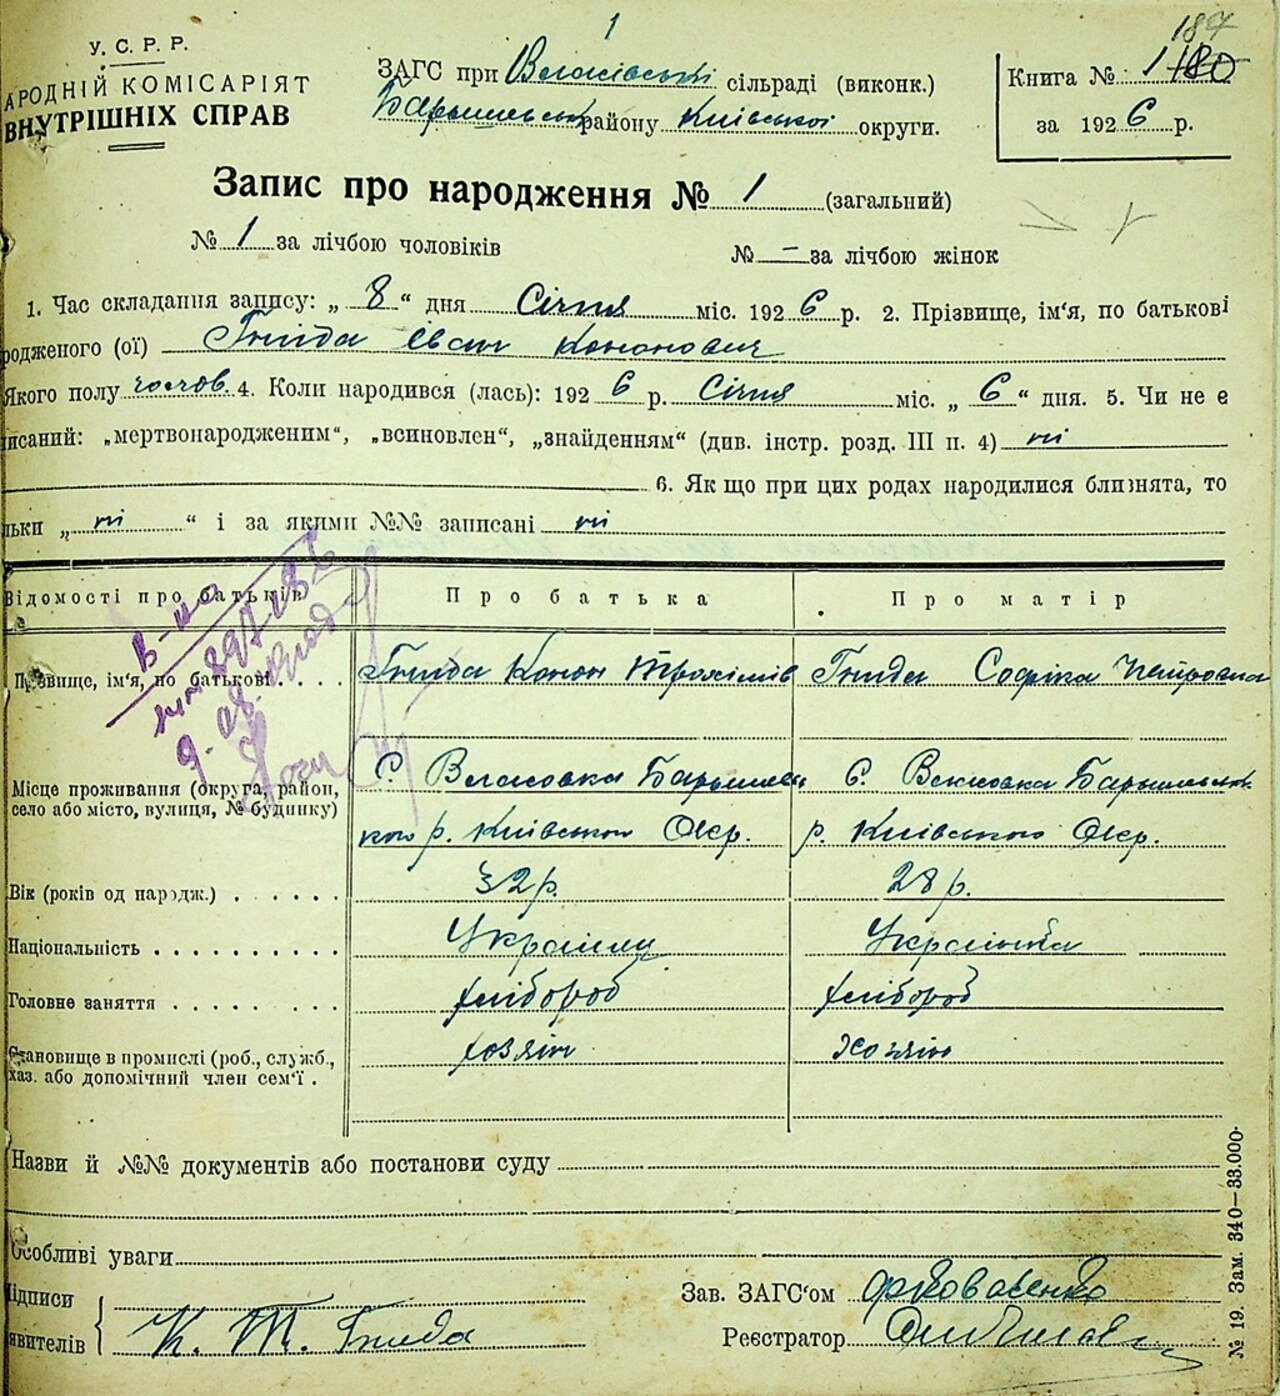 1
187
У. С. Р. Р.
АРОДНІЙ КОМІСАРІЯТ
ВНУТРІШНІХ СПРАВ
ЗАГС при Власівські сільраді (виконк.)
Баришевськ району Київської округи.
Книга № 1 180
за 1926 р.
Запис про народження № 1 (загальний)
№ 1 за лічбою чоловіків № — за лічбою жінок
1. Час складання запису: „ 8 “ дня Січня міс. 1926 р. 2. Прізвище, ім'я, по батькові
родженого (ої) Гнида Іван Кононович
Якого полу чолов. 4. Коли народився (лась): 1926 р. Січня міс. „ 6 “ дня. 5. Чи не є
писаний: „мертвонародженим“, „всиновлен“, „знайденням“ (див. інстр. розд. III п. 4) ні
6. Як що при цих родах народилися близнята, то
льки „ ні “ і за якими №№ записані ні
Відомості про батьків Про батька Про матір
Прізвище, ім'я, по батькові. . . . Гнида Конон Трохимів Гнида Софіка Петровна
Місце проживання (округа, район, С. Власовка Баришевс С. Власовка Баришевськ
село або місто, вулиця, № будинку) кого р. Київської Окр. р. Київського Окр.
Вік (років од народж.) . . . . . . 32 р. 28 р.
Національність . . . . . . . . . . Українец Українка
Головне заняття . . . . . . . . . хлібороб хлібороб
Становище в промислі (роб., служб., хозяїн хозяїн
хаз. або допомічний член сем'ї .
Назви й №№ документів або постанови суду
Особливі уваги
Підписи
явителів К. Т. Гнида
Зав. ЗАГС'ом Коваленко
Реєстратор
№ 19. Зам. 340—33.000.